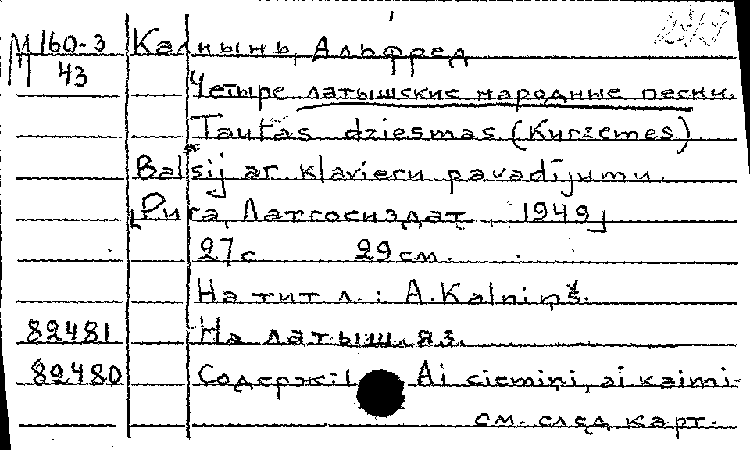 М160-3 Калнынь, Альфред
43
Четыре латышские народные песни.
Tautas dziesmas (Kurzemes).
Balsij ar klavieru pavadījumu.
[Рига, Латгосиздат, 1949]
27с 29 см.
На тит. л.: A. Kalniņš.
82481 На латыш. яз.
82480 Содерж.: 1 Ai ciemiņi, ai kaimi-
см. след. карт.